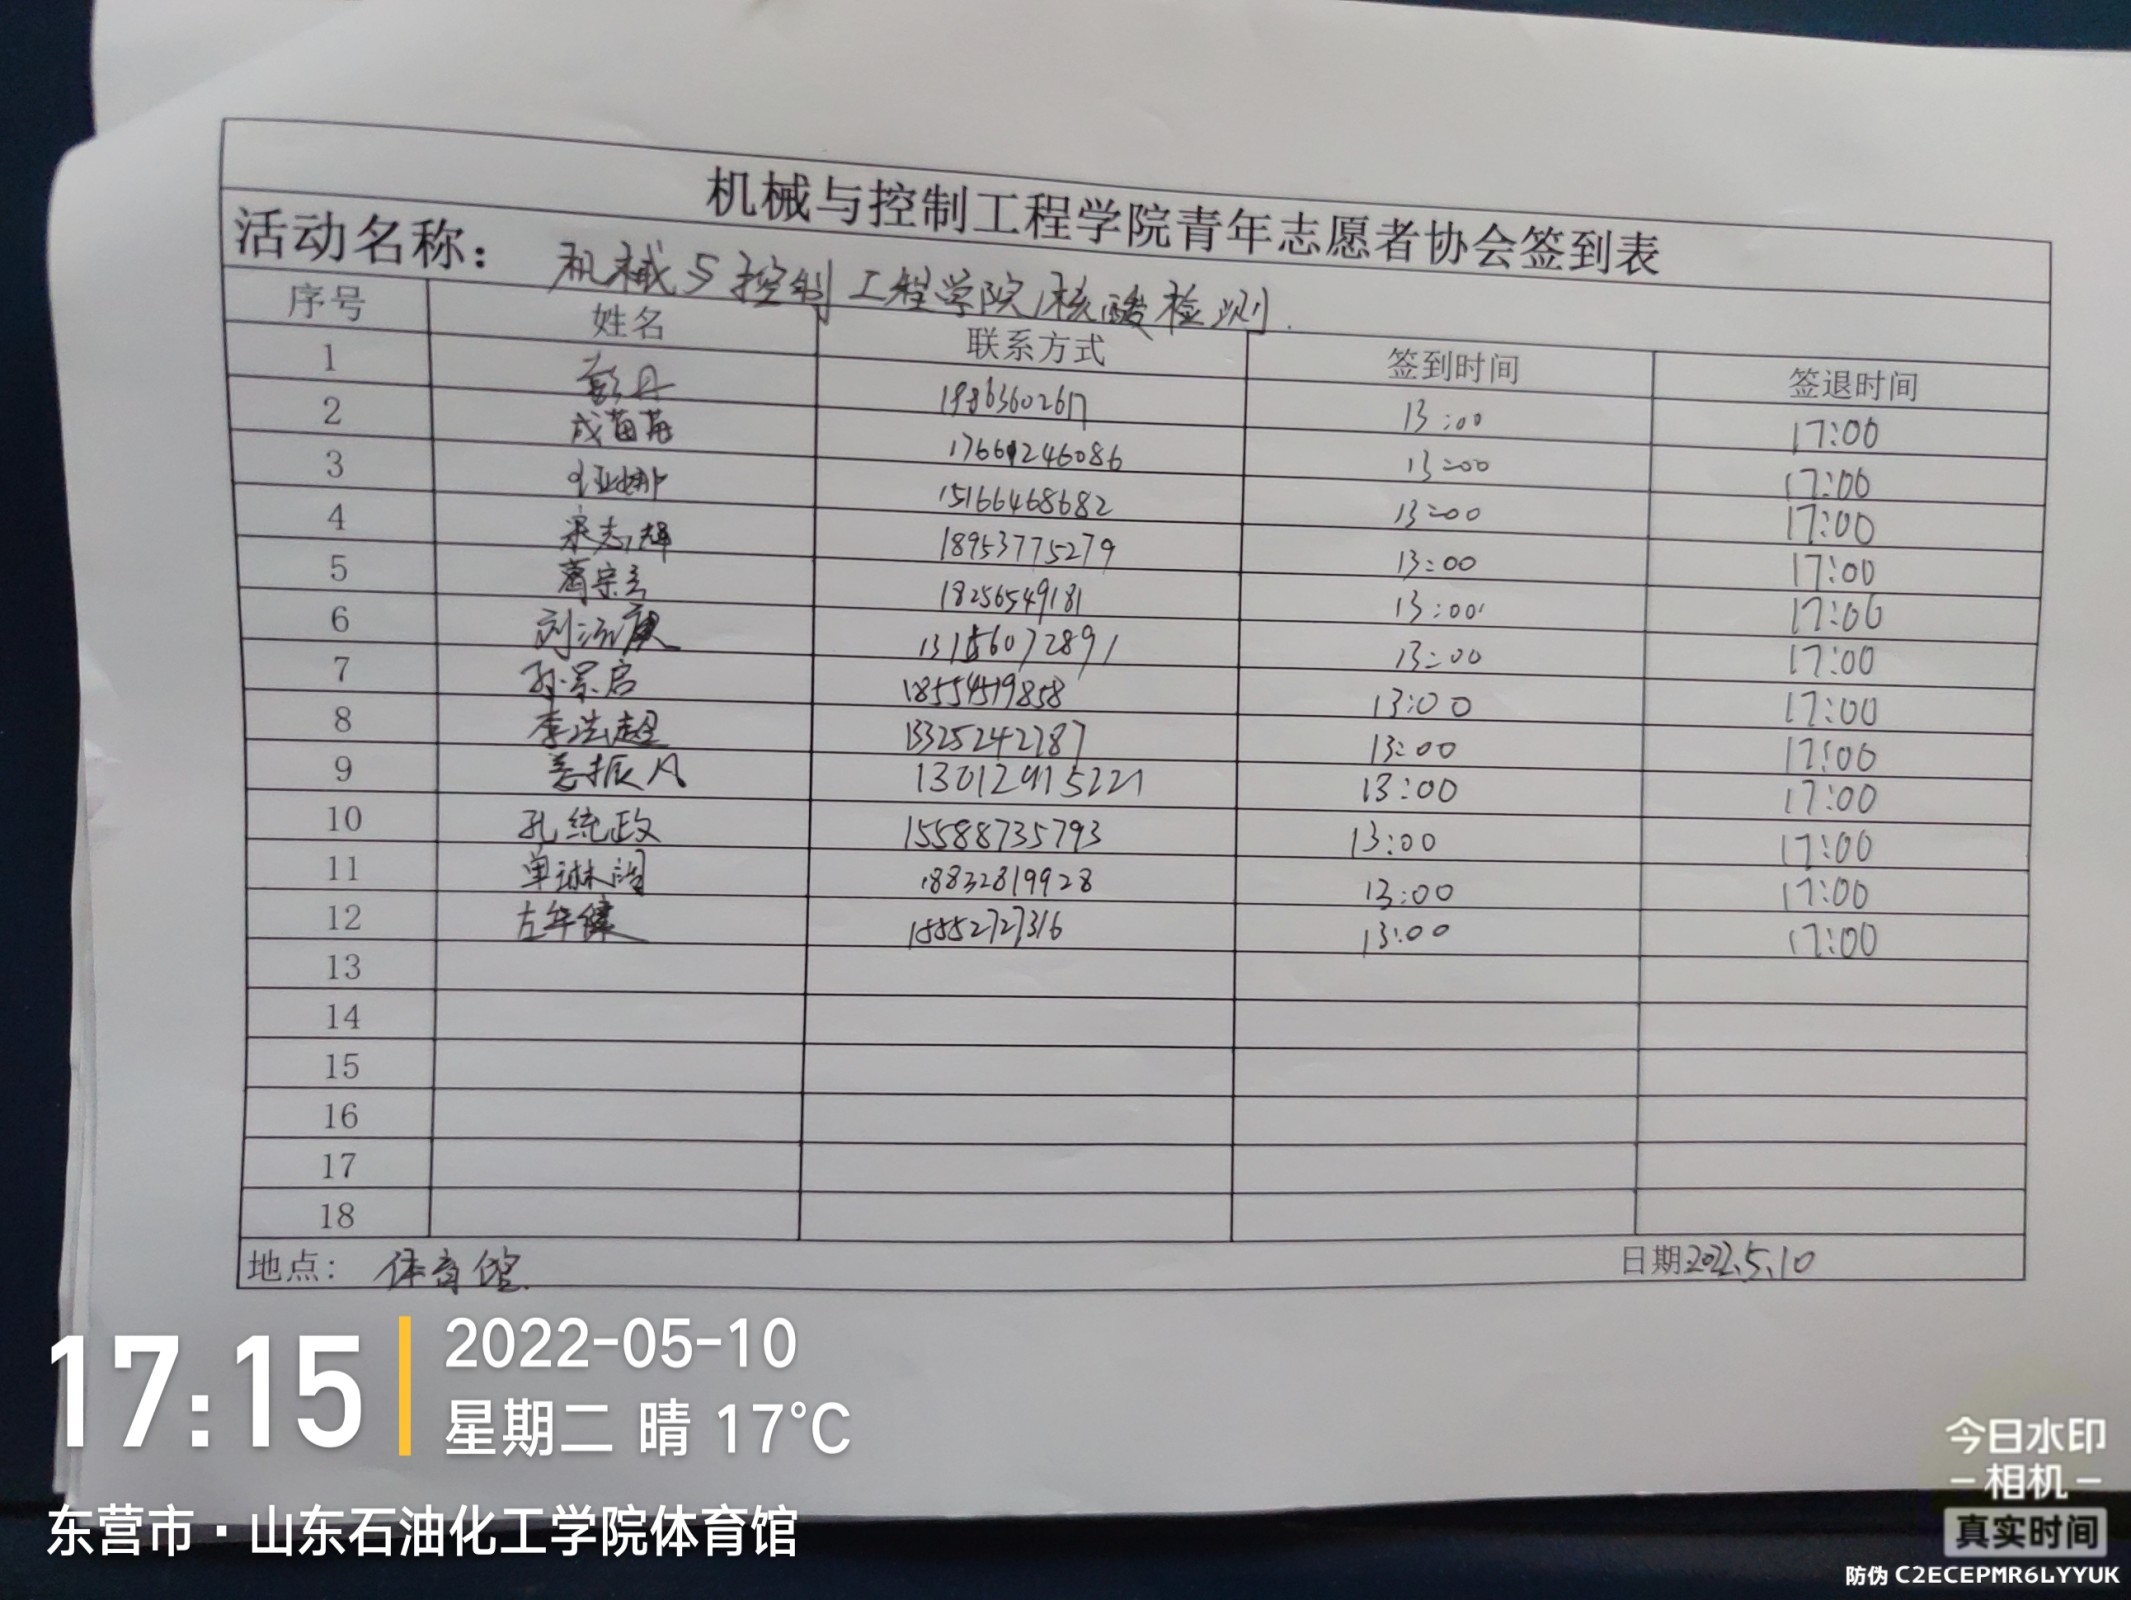 机械与控制工程学院青年志愿者协会签到表
活动名称： 机械与控制工程学院核酸检测.
序号 姓名 联系方式 签到时间 签退时间
1 彭丹 13:00 17:00
2 成苗苗 17661246086 13:00 17:00
3 亚娜 15166468682 13:00 17:00
4 宋志辉 18953775279 13:00 17:00
5 18256549181 13:00 17:00
6 13156072891 13:00 17:00
7 孙景启 18554519858 13:00 17:00
8 李浩超 13325242787 13:00 17:00
9 姜振凡 13012915221 13:00 17:00
10 孔统政 15588735793 13:00 17:00
11 单琳 18832819928 13:00 17:00
12 左华健 15552727316 13:00 17:00
13
14
15
16
17
18
地点： 体育馆. 日期:2022.5.10
17:15
2022-05-10
星期二 晴 17°C
东营市·山东石油化工学院体育馆
今日水印
-相机-
真实时间
防伪 C2ECEPMR6LYYUK